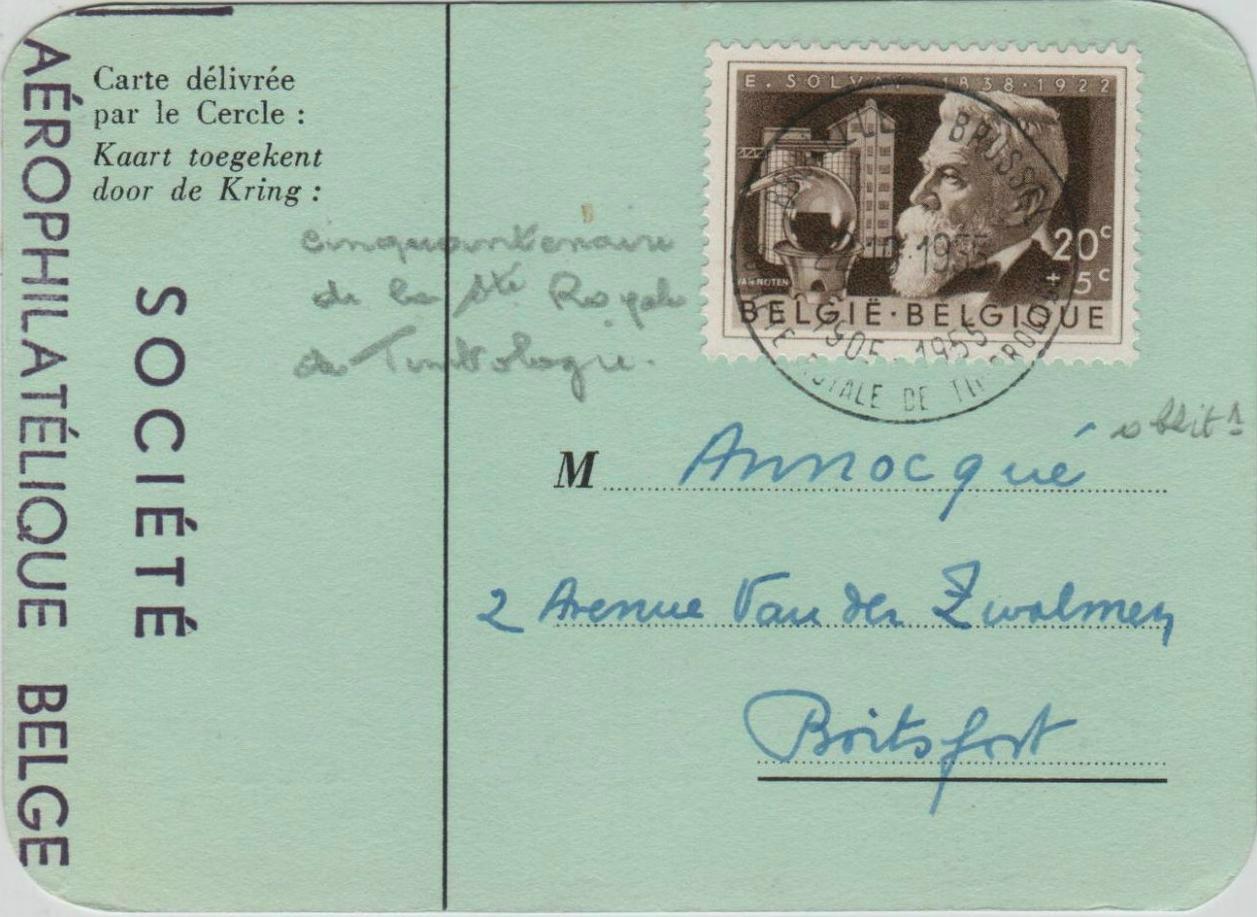 SOCIÉTÉ
AÉROPHILATÉLIQUE BELGE
Carte délivrée
par le Cercle :
Kaart toegekent
door de Kring :
cinquantenaire
de la Sté Royale
de Timbrologie.
E. SOLVAY 1838·1922
20c
+ 5c
VAN NOTEN
BELGIË·BELGIQUE
BRUSSEL
1955
1905 1955
ROYALE DE
M Annocqué
2 Avenue Van der Zwalmen
Boitsfort